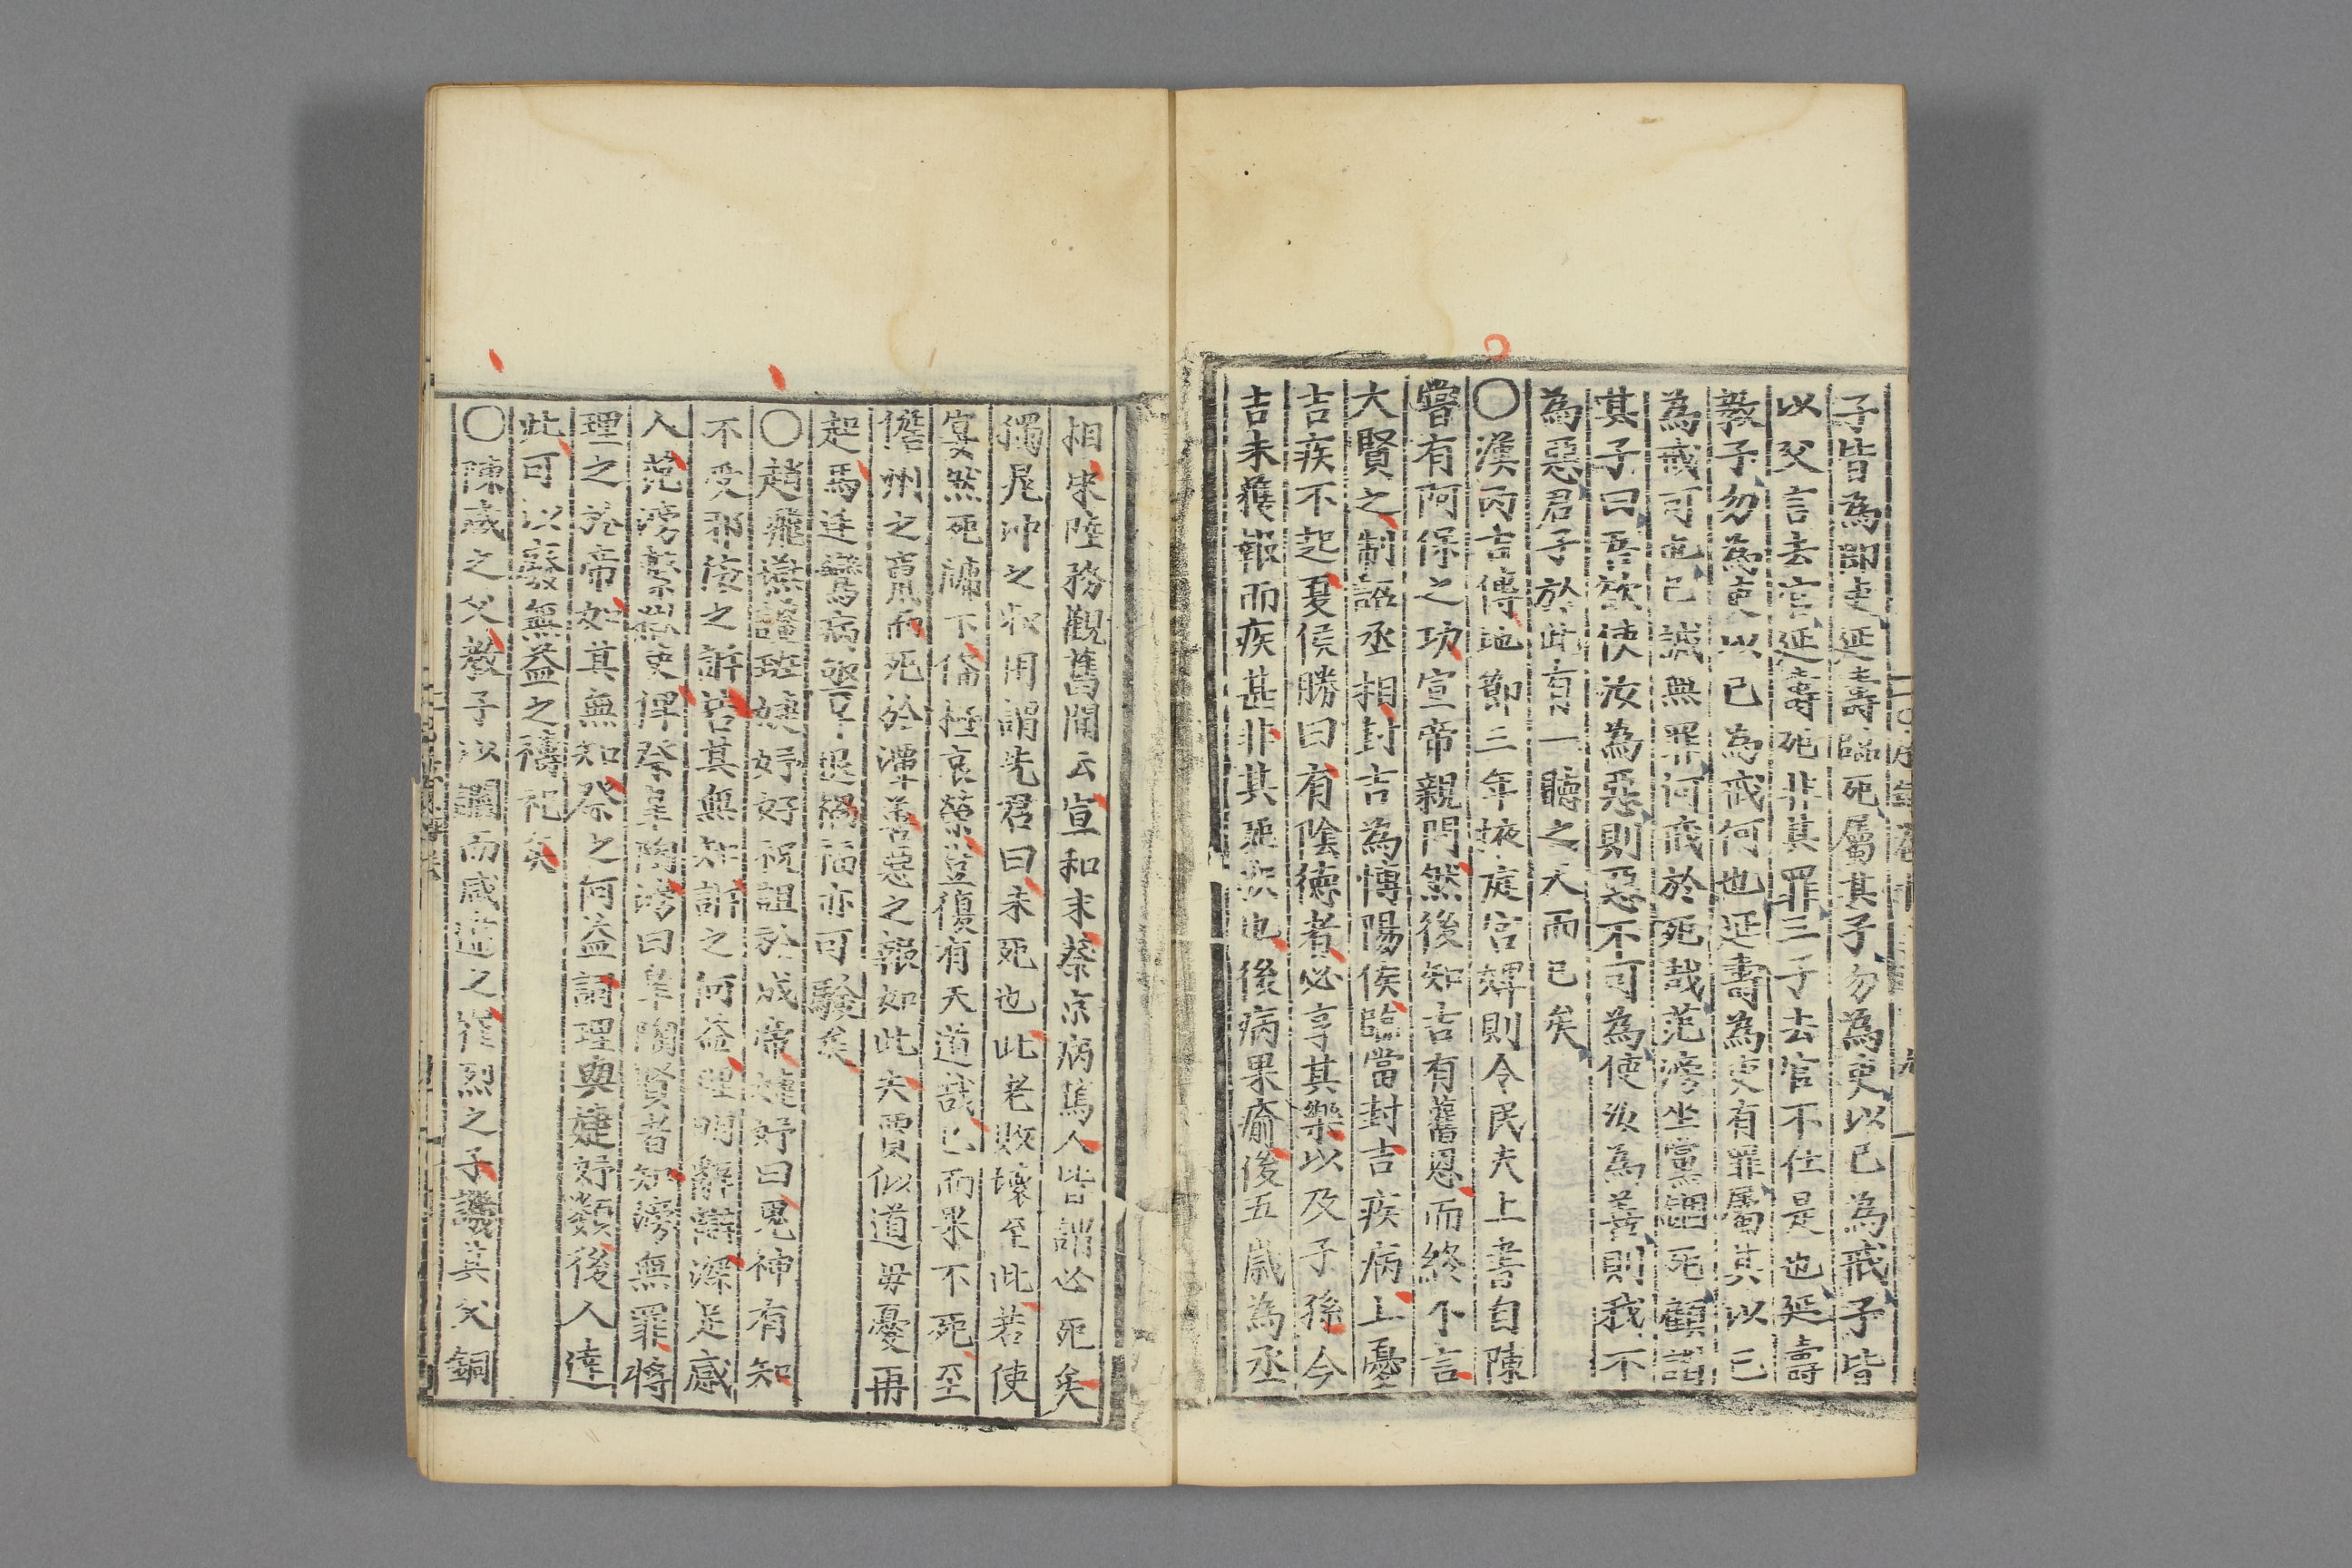 子皆為郎吏延壽臨死屬其子勿為吏以己為戒子皆
以父言去官延壽死非其罪三子去官不仕是也延壽
教子勿為吏以己為戒何也延壽為吏有罪屬其以已
為戒可也已誠無罪何戒於死哉范滂坐黨錮死顧謂
其子曰吾欲使汝為惡則惡不可為使汝為善則我不
為惡君子於此有一聽之天而已矣
○漢丙吉傳地節三年掖庭宮婢則令民夫上書自陳
嘗有阿保之功宣帝親問然後知吉有舊恩而終不言
大賢之制詔丞相封吉為博陽侯臨當封吉疾病上憂
吉疾不起夏侯勝曰有陰德者必享其樂以及子孫今
吉未獲報而疾甚非其死疾也後病果瘉後五歲為丞
相宋陸務觀舊聞云宣和末蔡京病篤人皆謂必死矣
獨晁沖之叔用謂先君曰未死也此老敗壞至此若使
寘然死牖下倫極哀榮豈復有天道哉已而果不死至
儋州之竄而死於潭善惡之報如此夫賈似道毋憂再
起馬廷鸞病亟予退禍福亦可驗矣
○趙飛燕譖班婕妤祝詛於成帝婕妤曰鬼神有知
不受邪佞之訴若其無知訴之何益理明辭辯深足感
人范滂繫獄吏俾祭皋陶滂曰皋陶賢者知滂無罪將
理之於帝如其無知祭之何益詞理與婕妤類後人達
此可以發無益之禱祀矣
○陳咸之父教子以讇而咸逆之崔烈之子譏其父銅